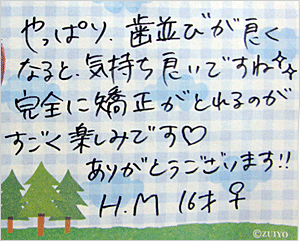 やっぱり、歯並びが良く
なると、気持ち良いですね✨
完全に矯正がとれるのが
すごく楽しみです♡
ありがとうございます!!
H.M 16才 ♀
©ZUIYO